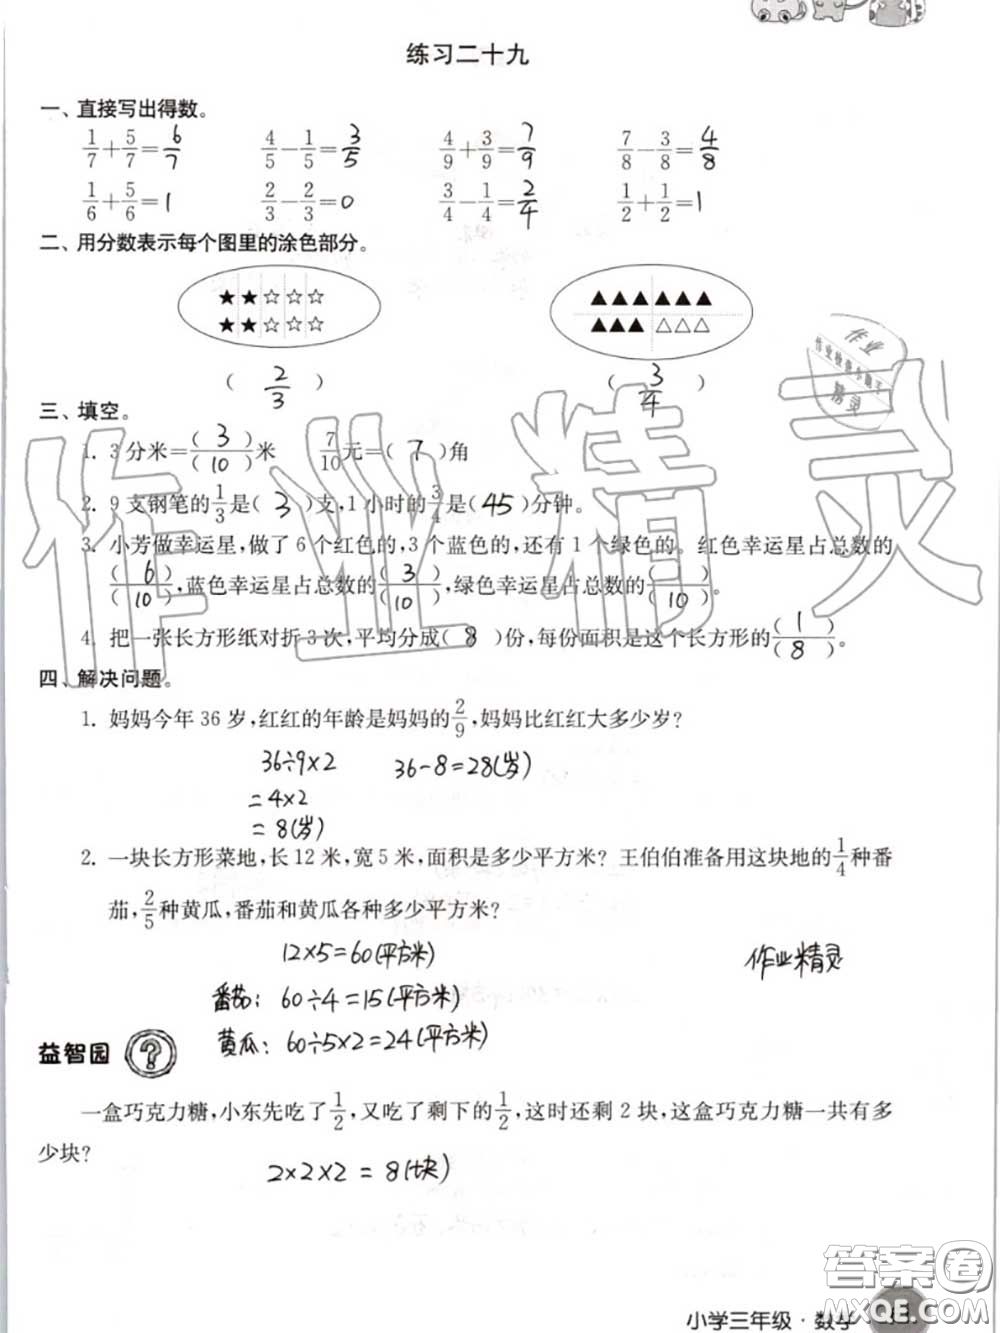 练习二十九
一、直接写出得数。
1/7+5/7=6/7 4/5−1/5=3/5 4/9+3/9=7/9 7/8−3/8=4/8
1/6+5/6=1 2/3−2/3=0 3/4−1/4=2/4 1/2+1/2=1
二、用分数表示每个图里的涂色部分。
( 2/3 ) ( 3/4 )
三、填空。
1. 3分米=(3)/(10)米 7/10元=( 7 )角
2. 9支钢笔的1/3是( 3 )支,1小时的3/4是( 45 )分钟。
3. 小芳做幸运星,做了6个红色的,3个蓝色的,还有1个绿色的。红色幸运星占总数的
(6)/(10),蓝色幸运星占总数的(3)/(10),绿色幸运星占总数的( )/(10)。
4. 把一张长方形纸对折3次,平均分成( 8 )份,每份面积是这个长方形的(1)/(8)。
四、解决问题。
1. 妈妈今年36岁,红红的年龄是妈妈的2/9,妈妈比红红大多少岁?
36÷9×2 36-8=28(岁)
=4×2
=8(岁)
2. 一块长方形菜地,长12米,宽5米,面积是多少平方米? 王伯伯准备用这块地的1/4种番
茄,2/5种黄瓜,番茄和黄瓜各种多少平方米?
12×5=60(平方米)
作业精灵
番茄: 60÷4=15(平方米)
黄瓜: 60÷5×2=24(平方米)
益智园 ?
一盒巧克力糖,小东先吃了1/2,又吃了剩下的1/2,这时还剩2块,这盒巧克力糖一共有多
少块?
2×2×2=8(块)
小学三年级·数学
作业精灵
作业
精灵
答案圈
MXQE.COM